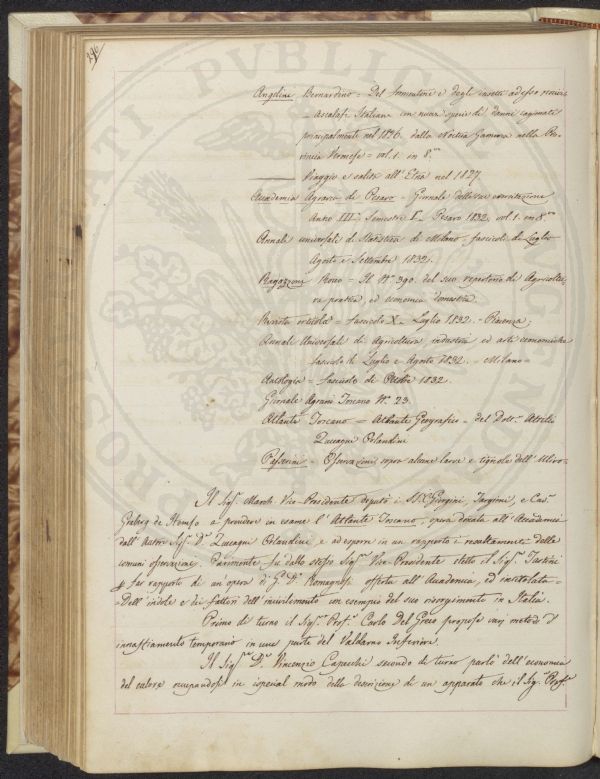 396
Angelini Bernardino = Del formentone e degli insetti ad esso nocivi
= Ascalafi Italiani con nuova specie di danni cagionati
principalmente nel 1826. dalla Noctua Gamma nella Pro-
vincia Veronese = vol. 1. in 8.vo
Viaggio e salita all' Etna nel 1827.
Accademia Agraria di Pesaro = Giornale delle sue esercitazioni
Anno III. Semestre I. Pesaro 1832. vol. 1. in 8.vo
Annali universali di Statistica di Milano = fascicoli di Luglio
Agosto e Settembre 1832.
Ragazzoni Rocco = Il N.o 390. del suo repertorio di Agricoltu-
ra pratica, ed economia domestica
fascicolo X. Luglio 1832. - Piacenza;
Annali Universali di Agricoltura, industria ed arti economiche
fascicoli di Luglio e Agosto 1832. - Milano =
Antologia = fascicolo di Ottobre 1832.
Giornale Agrario Toscano N.o 23.
Atlante Toscano = Atlante Geografico - del Dott.r Attilio
Zuccagni Orlandini
Passerini = Osservazioni sopra alcune larve e tignole dell' Ulivo -
Il Sig.r March. Vice-Presidente deputò i SS.ri Giorgini, Targioni, e Cav.
Graberg de Hemso a prendere in esame l' Atlante Toscano, opera donata all' Accademia
dall' Autore Sig.r D.r Zuccagni Orlandini e ad esporre in un rapporto i resultamenti delle
comuni osservazioni. Parimente fu dallo stesso Sig.r Vice Presidente eletto il Sig.r Tartini
p far rapporto di un opera di G. D. Romagnosi offerta all' Accademia, ed intitolata =
Dell' indole e dei fattori dell' incivilimento con esempio del suo risorgimento in Italia.
Primo di turno il Sig.r Prof.r Carlo Del Greco propose varj metodi d'
innaffiamento temporario in una parte del Valdarno Inferiore.
Il Sig.r D.r Vincenzio Capecchi secondo di turno parlò dell' economia
del calore occupandosi in ispecial modo della descrizione di un apparato che il Sig.r Prof.r